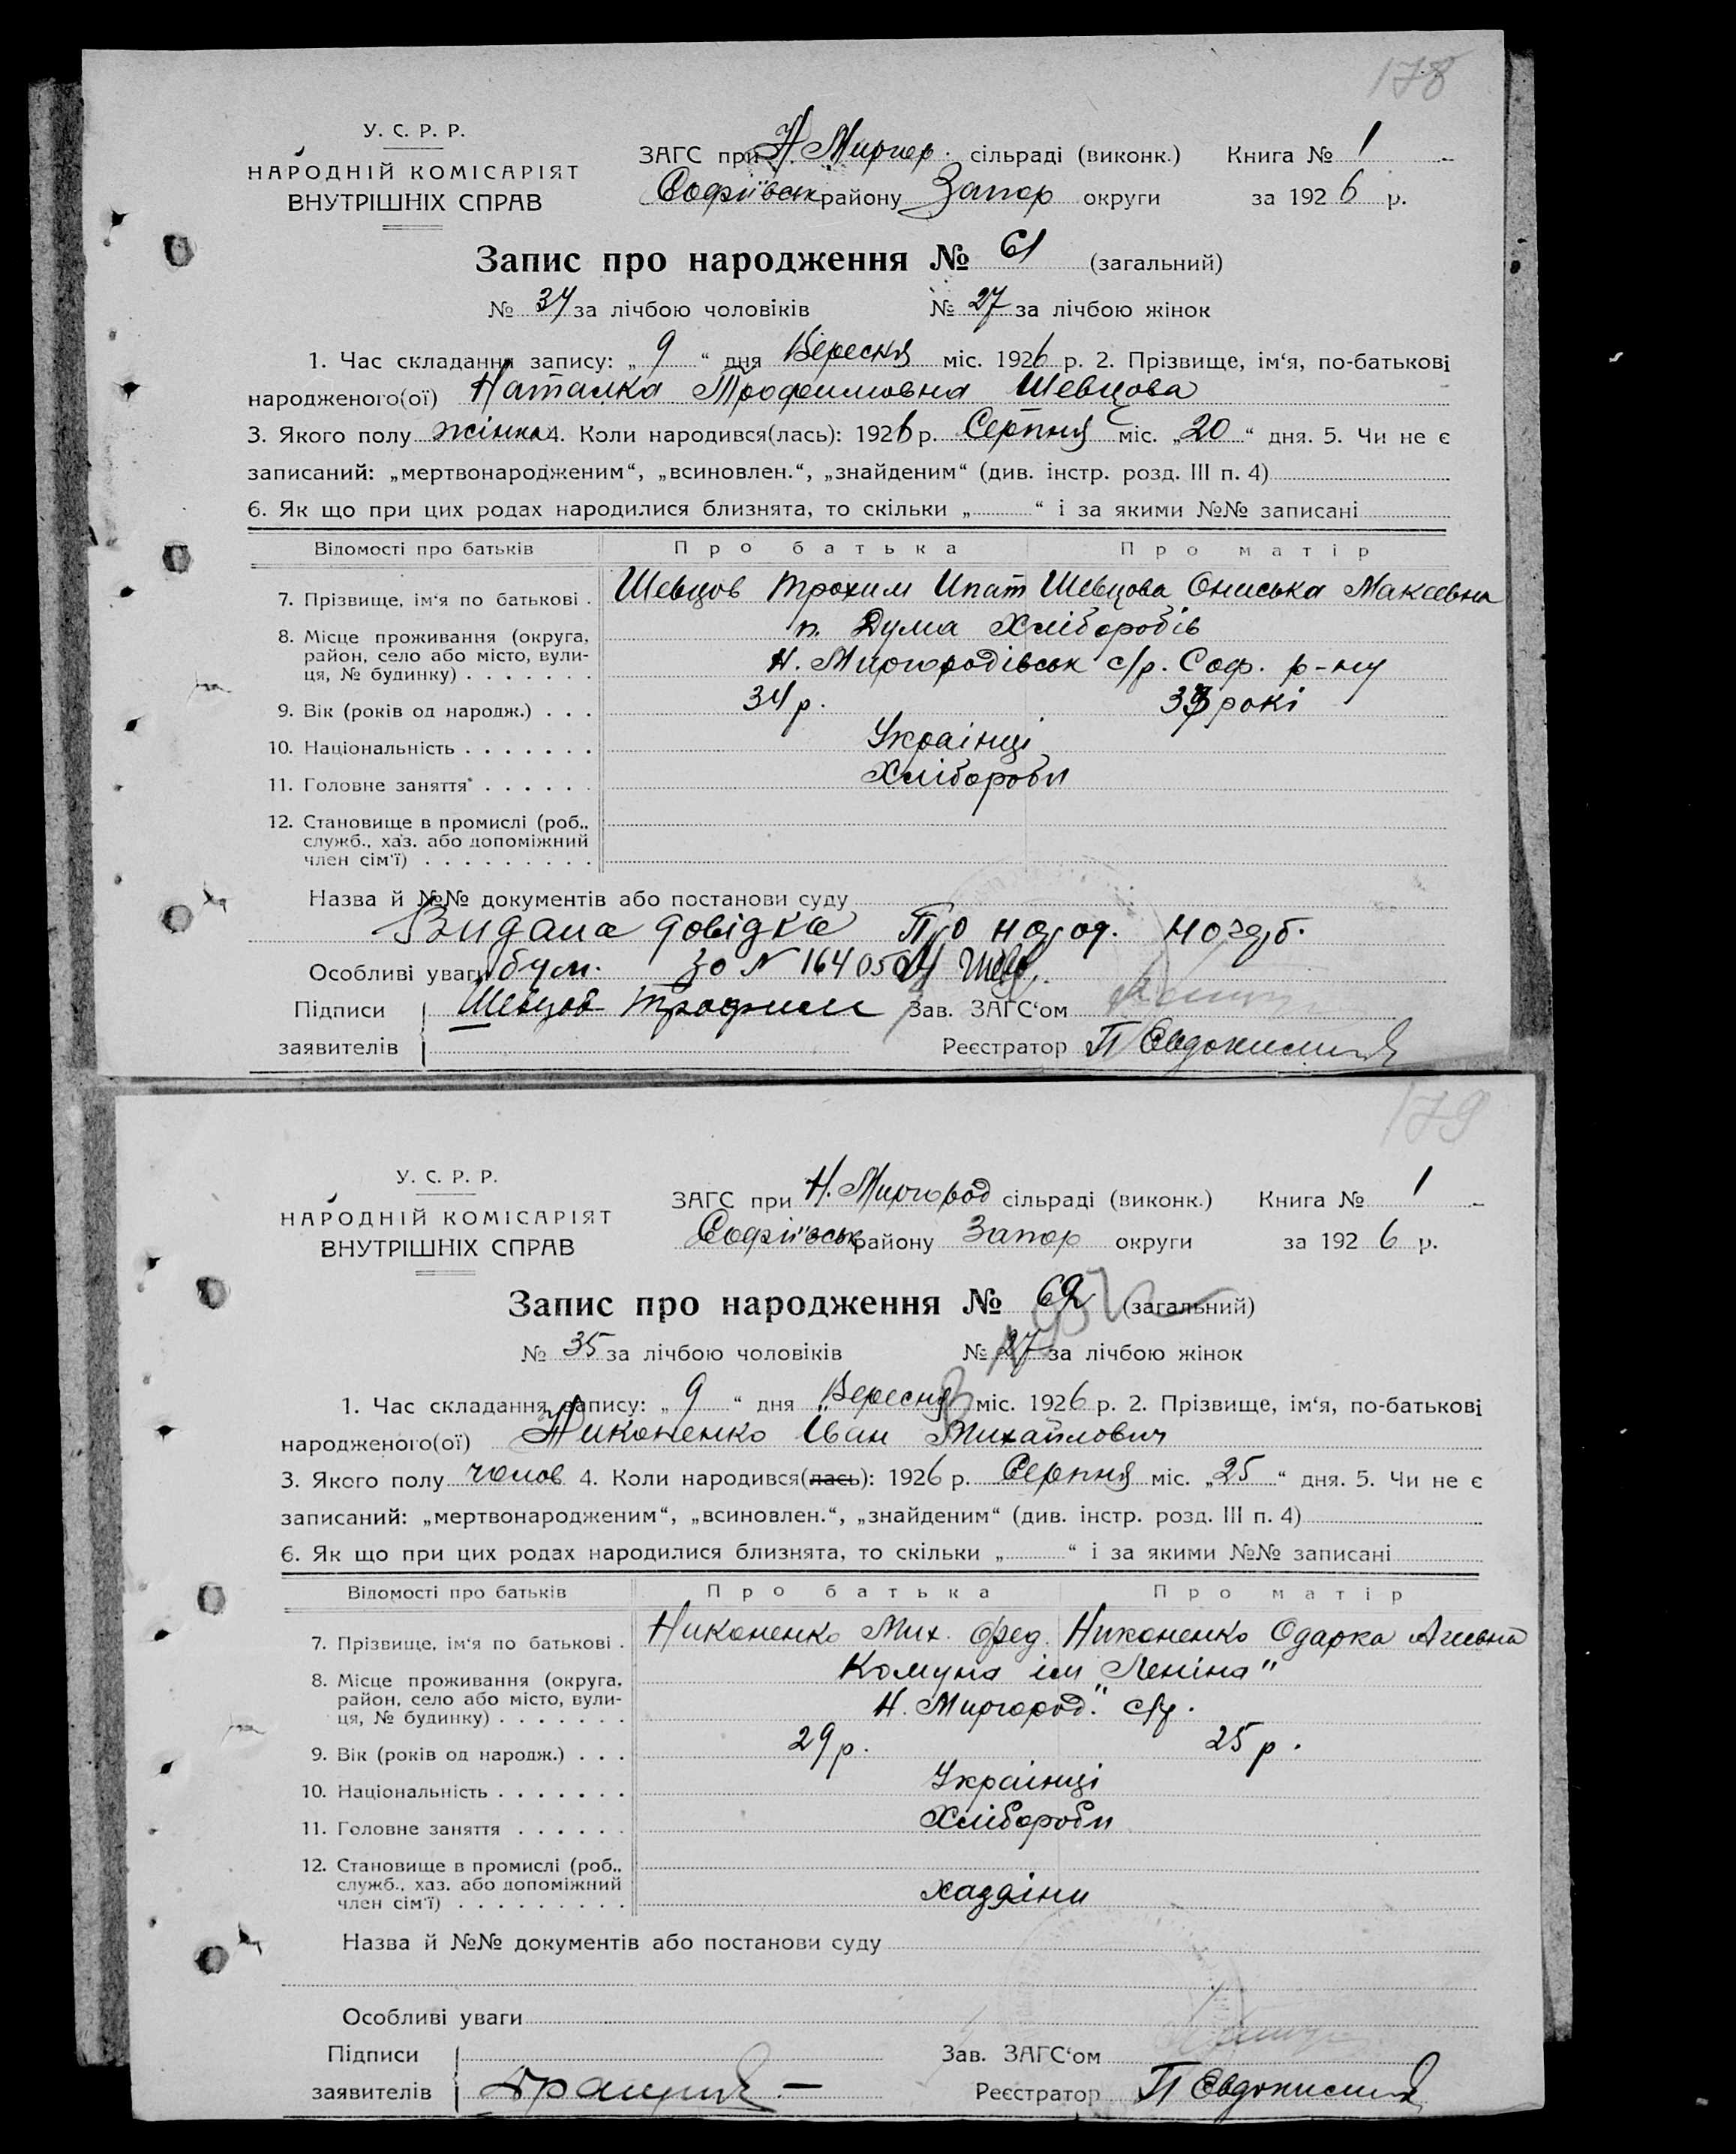 178
У. С. Р. Р.
НАРОДНІЙ КОМІСАРІЯТ
ВНУТРІШНІХ СПРАВ
ЗАГС при Н. Миргор. сільраді (виконк.) Книга № 1
Софіївськ району Запор округи за 1926 р.
Запис про народження № 61 (загальний)
№ 34 за лічбою чоловіків № 27 за лічбою жінок
1. Час складання запису: „ 9 “ дня Вересня міс. 1926 р. 2. Прізвище, ім‘я, по-батькові
народженого(ої) Наталка Трофимовна Шевцова
3. Якого полу жінка 4. Коли народився(лась): 1926 р. Серпня міс. „20“ дня. 5. Чи не є
записаний: „мертвонародженим“, „всиновлен.“, „знайденим“ (див. інстр. розд. III п. 4)
6. Як що при цих родах народилися близнята, то скільки „ “ і за якими №№ записані
Відомості про батьків Про батька Про матір
7. Прізвище, ім‘я по батькові . Шевцов Трохим Ипат Шевцова Ониська Макеевна
8. Місце проживання (округа, район, село або місто, вули-ця, № будинку) . . . . . . . п. Дума Хліборобів
Н. Миргородівськ с/р. Соф. р-ну
9. Вік (років од народж.) . . . 34 р. 33 рокі
10. Національність . . . . . . . Украінці
11. Головне заняття . . . . . . Хлібороби
12. Становище в промислі (роб., служб., хаз. або допоміжний член сім‘ї) . . . . . . . . .
Назва й №№ документів або постанови суду
Видана довідка Про народ.
Особливі уваги за № 164050
Підписи Шевцов Трофим Зав. ЗАГС‘ом
заявителів Реєстратор П Евдокимия
179
У. С. Р. Р.
НАРОДНІЙ КОМІСАРІЯТ
ВНУТРІШНІХ СПРАВ
ЗАГС при Н. Миргород сільраді (виконк.) Книга № 1
Софіївськ району Запор округи за 1926 р.
Запис про народження № 62 (загальний)
№ 35 за лічбою чоловіків № 27 за лічбою жінок
1. Час складання запису: „ 9 “ дня Вересня міс. 1926 р. 2. Прізвище, ім‘я, по-батькові
народженого(ої) Никоненко Іван Михайлович
3. Якого полу чолов 4. Коли народився(лась): 1926 р. Серпня міс. „25“ дня. 5. Чи не є
записаний: „мертвонародженим“, „всиновлен.“, „знайденим“ (див. інстр. розд. III п. 4)
6. Як що при цих родах народилися близнята, то скільки „ “ і за якими №№ записані
Відомості про батьків Про батька Про матір
7. Прізвище, ім‘я по батькові . Никоненко Мих. Фед. Никоненко Одарка
8. Місце проживання (округа, район, село або місто, вули-ця, № будинку) . . . . . . . Комуна ім „Леніна"
Н. Миргород." с/р.
9. Вік (років од народж.) . . . 29 р. 25 р.
10. Національність . . . . . . . Украінці
11. Головне заняття . . . . . . Хлібороби
12. Становище в промислі (роб., служб., хаз. або допоміжний член сім‘ї) . . . . . . . . . хазяіни
Назва й №№ документів або постанови суду
Особливі уваги
Підписи Зав. ЗАГС‘ом
заявителів Реєстратор П Евдокимия